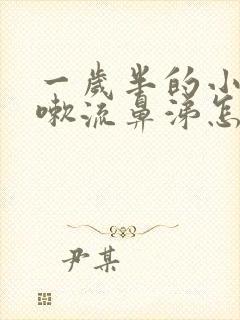 一歲半的小
嗽流鼻涕怎
尹某